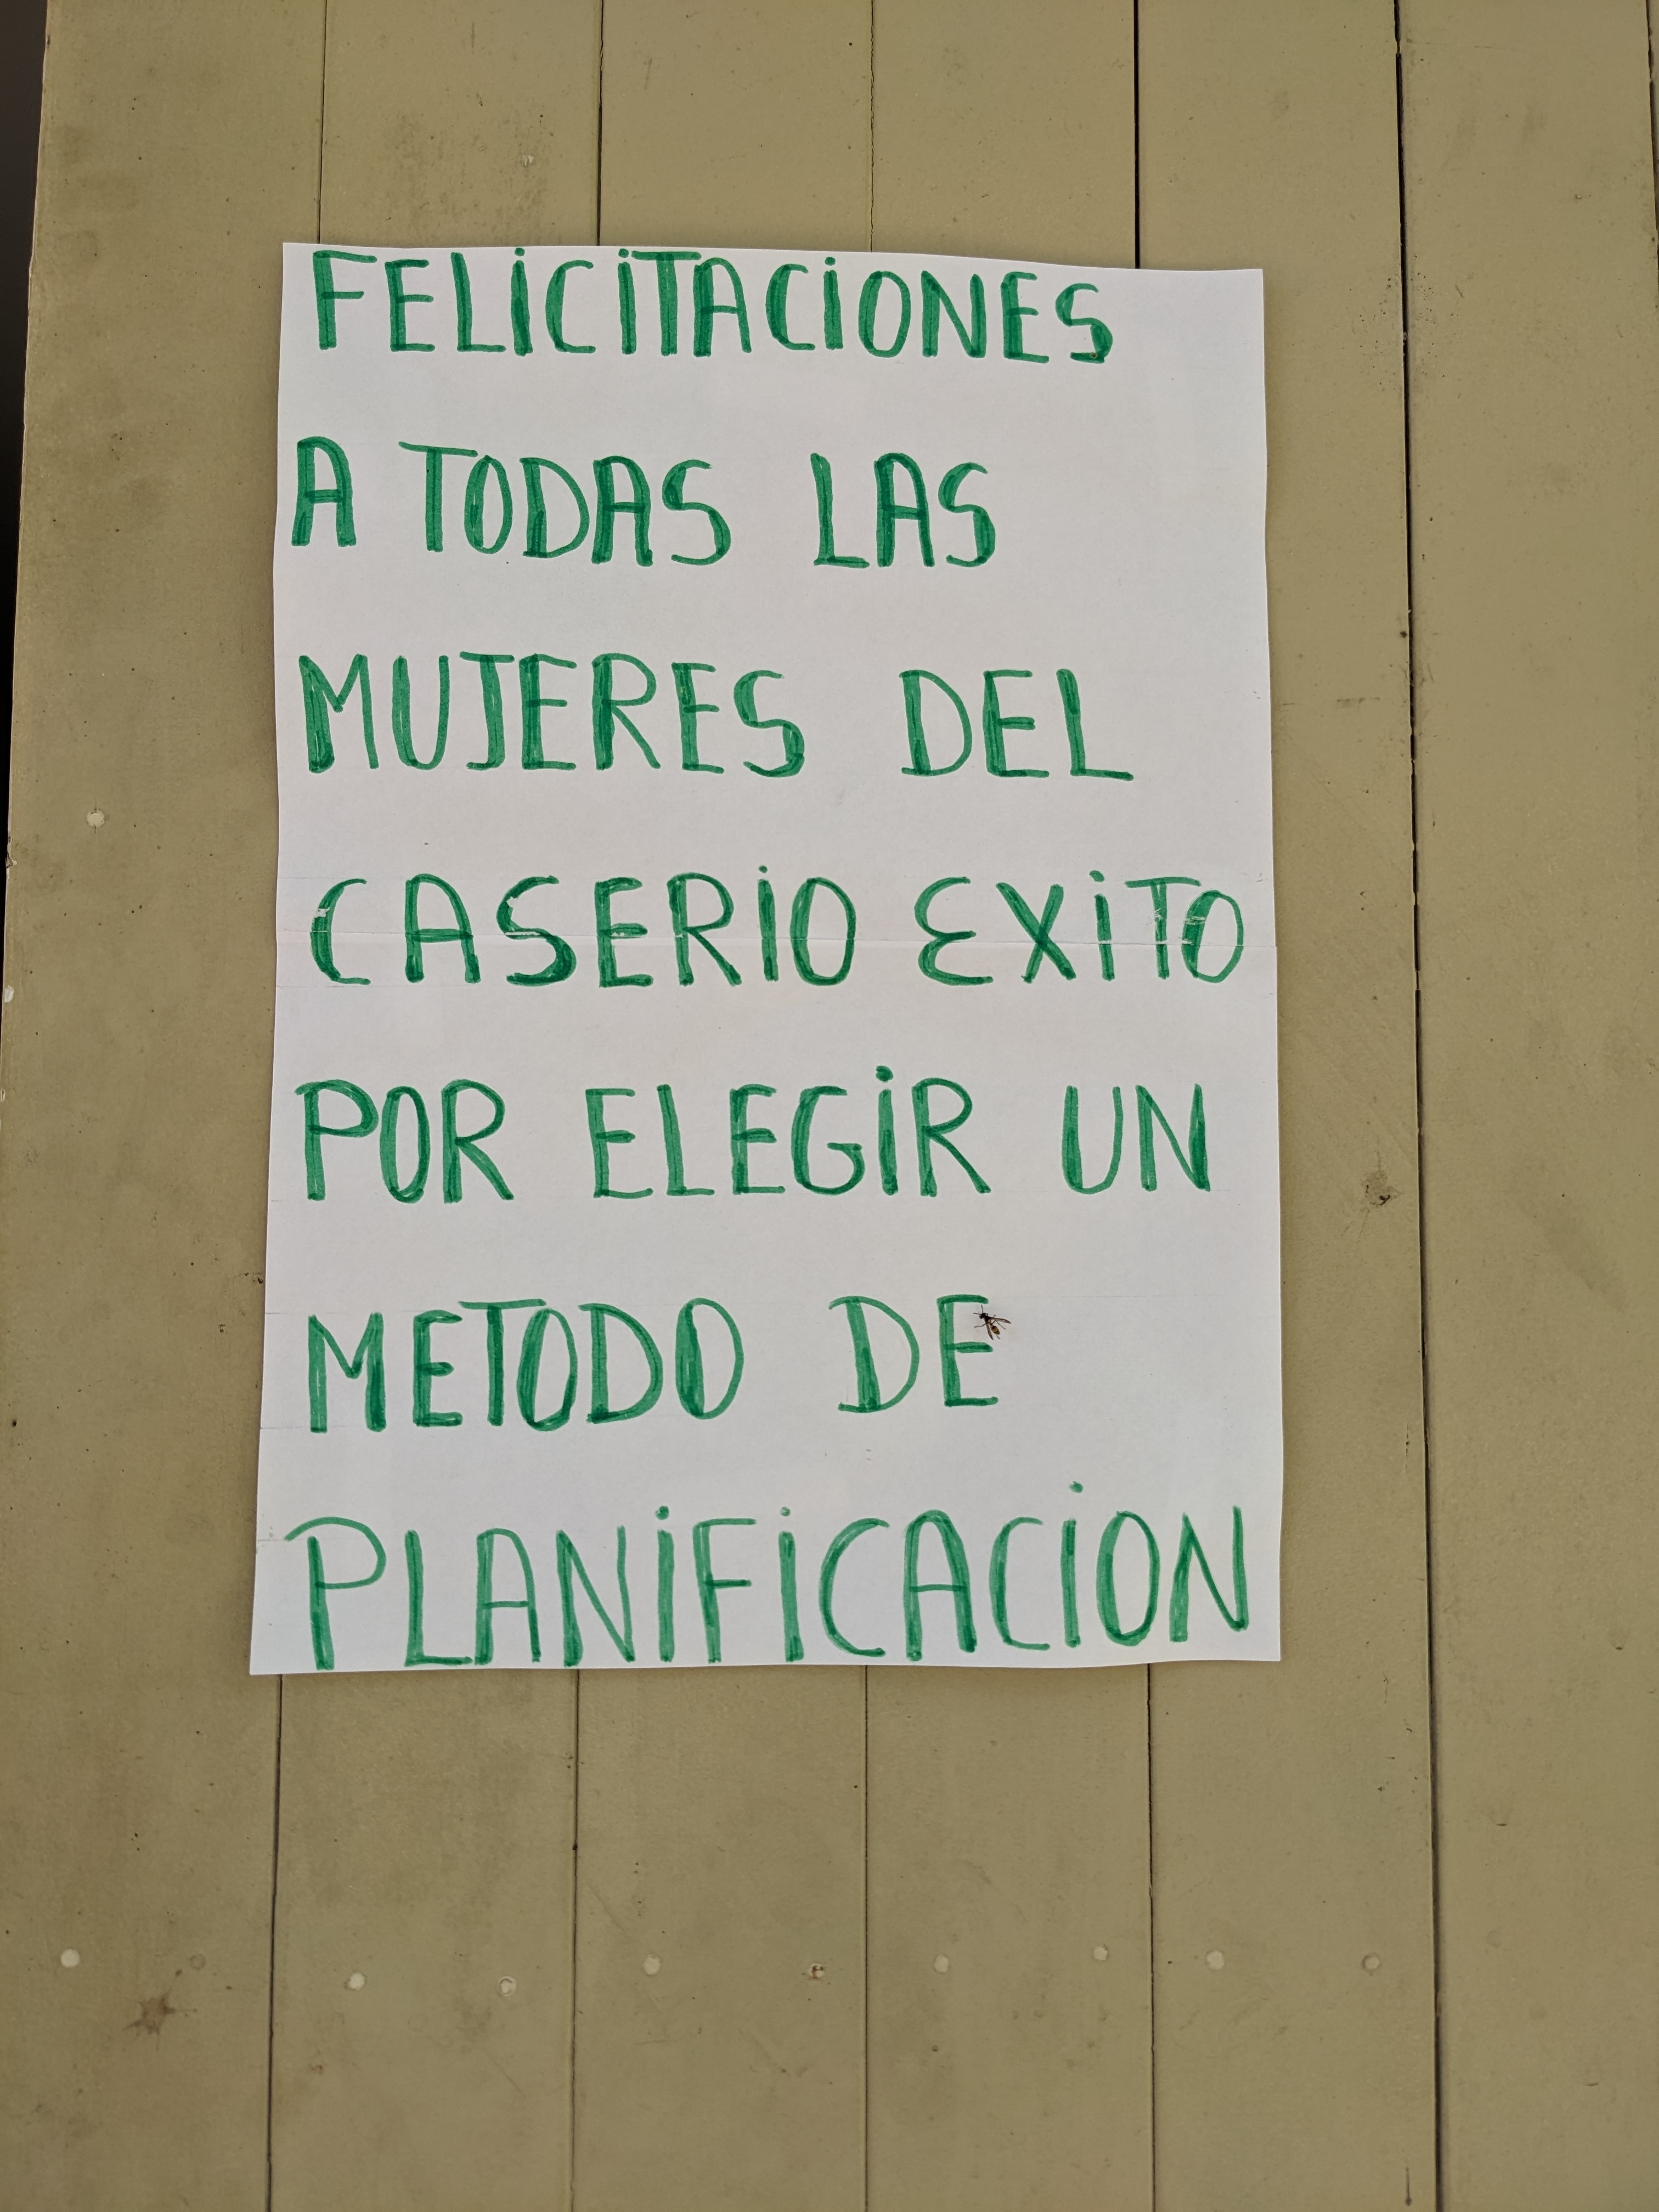 FELICITACIONES
A TODAS LAS
MUJERES DEL
CASERIO EXITO
POR ELEGIR UN
METODO DE
PLANIFICACION